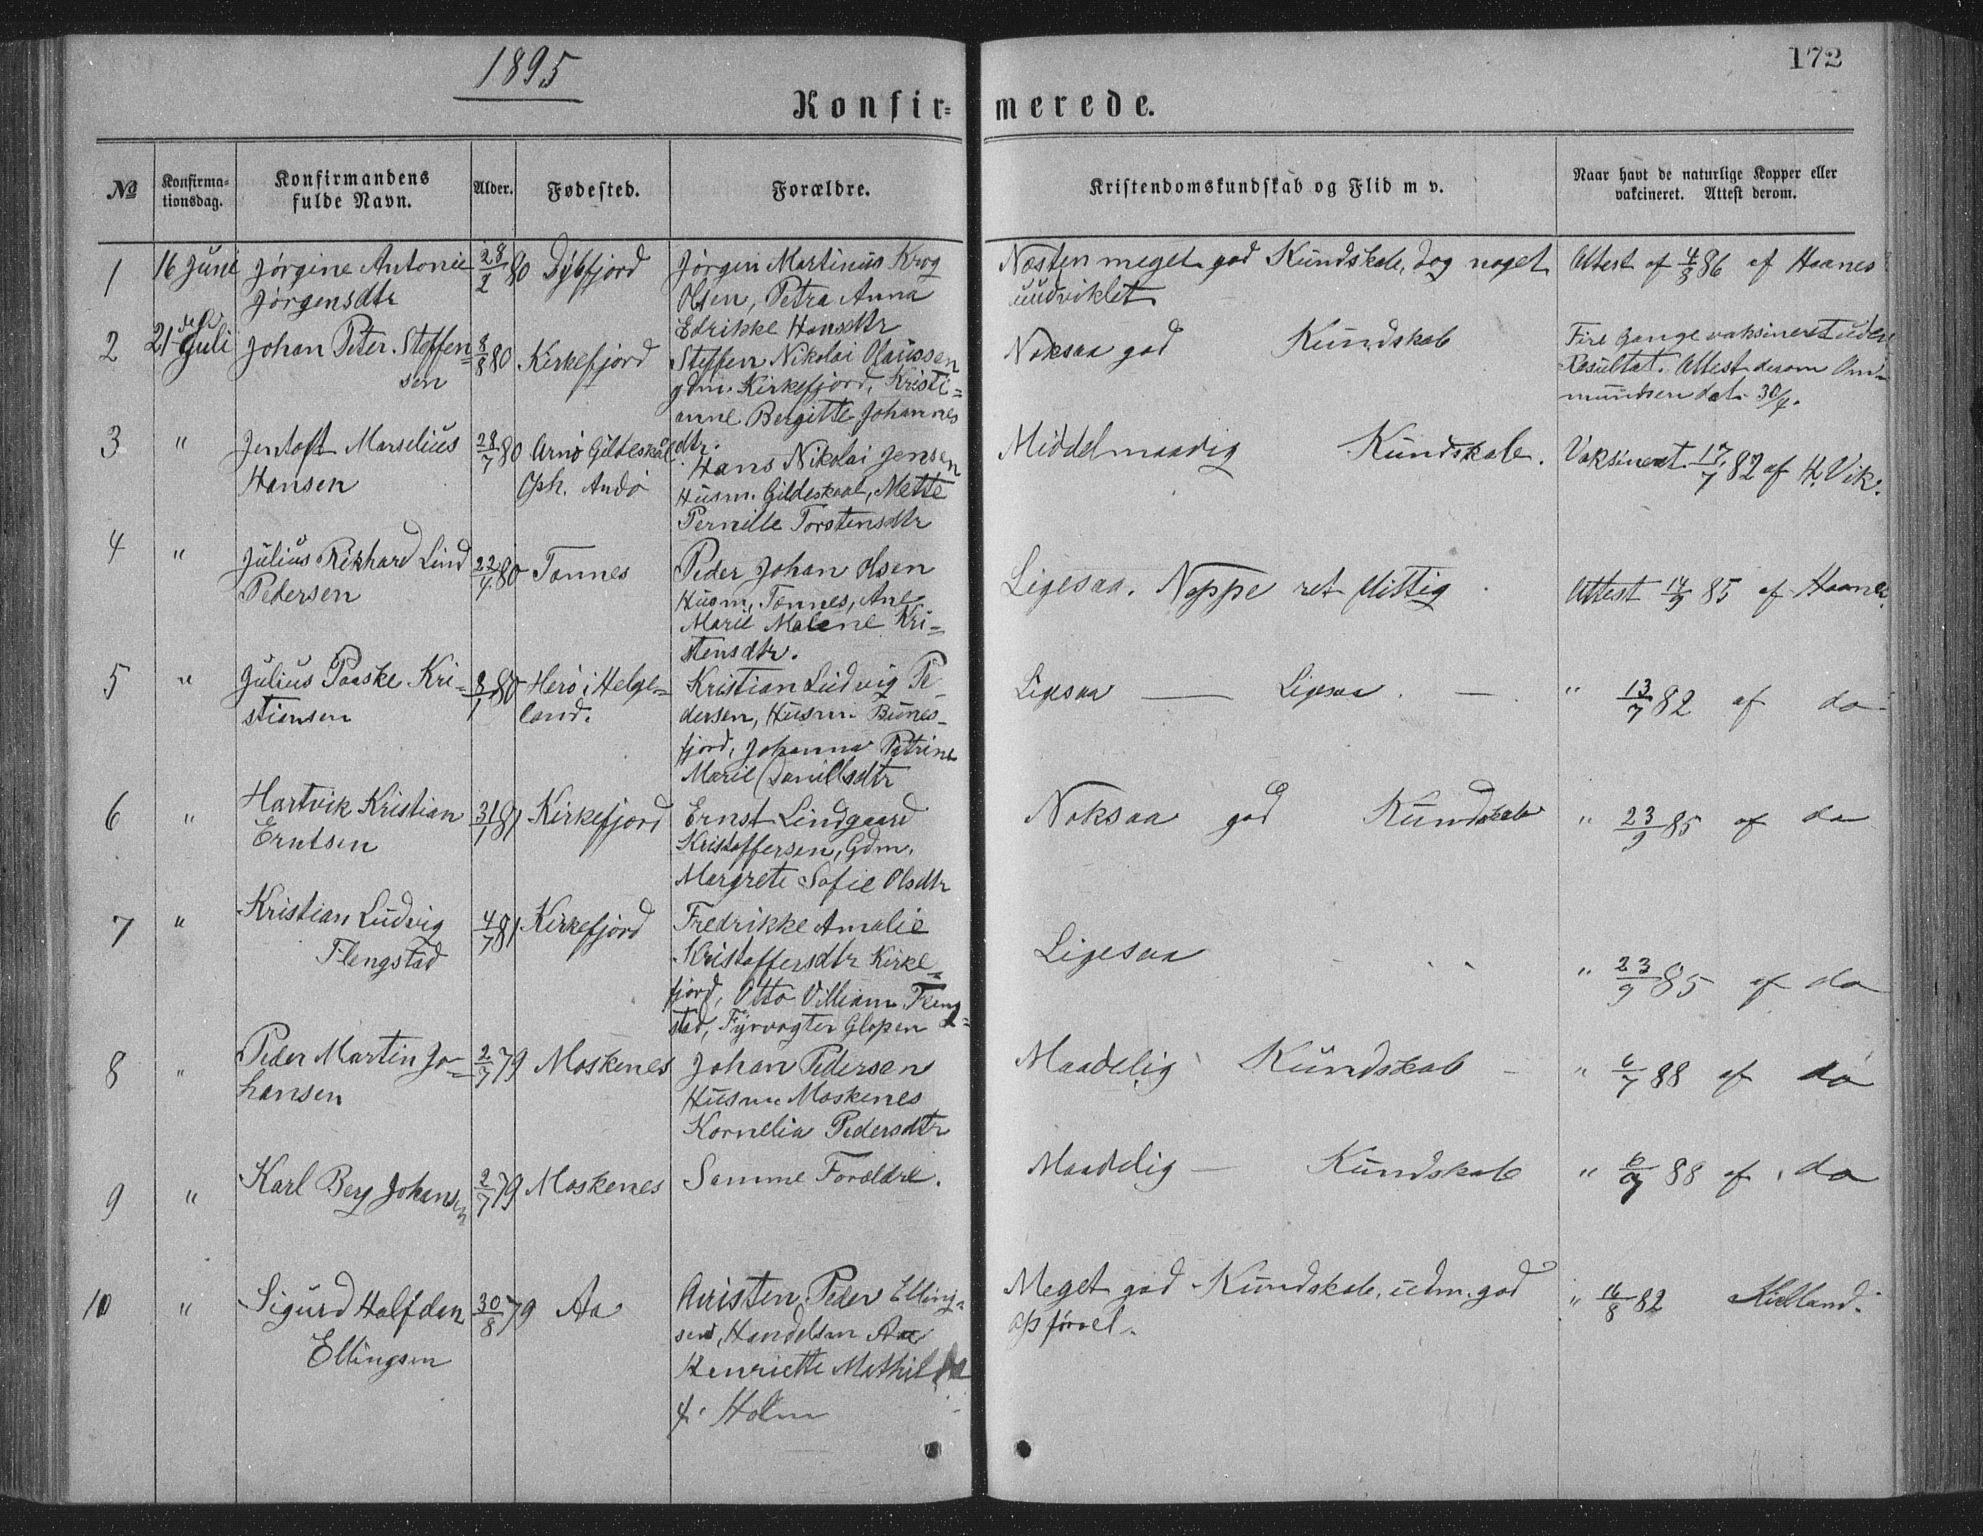 1895
172
Konfir=
merede.
No
Konfirma-
tionsdag.
Konfirmandens
fulde Navn.
Alder.
Fødested.
Forældre.
Kristendomskundskab og Flid m v.
Naar havt de naturlige Kopper eller
vakcineret. Attest derom.
1 16 Juni Jørgine Antonie 28/2 80 Dybfjord Jørgen Martinus Krog Næsten meget god Kundskab, dog noget Attest af 4/8 86 af Haanes
Jørgensdtr Olsen, Petra Anna uudviklet
Edrikke Hansdtr
2 21 Juli Johan Peter Steffen 8/8 80 Kirkefjord Steffen Nikolai Olaussen Noksaa god Kundskab Fire Gange vaksineret uden
sen gdm. Kirkefjord, Kristi= Resultat. Attest derom Am-
anne Bergitte Johannes mundsen dat. 30/4.
dtr.
3 " Jentoft Marselius 28/7 80 Arnø Gildeskaal Hans Nikolai Jensen Middelmaadig Kundskab. Vaksineret 17/7 82 af H. Vik.
Hansen Oph. Andø Husm. Gildeskaal, Mette
Pernille Torstensdtr
4 " Julius Rikhard Lind 22/4 80 Tønnes Peder Johan Olsen Ligesaa. Noppe ret flittig Attest 14/9 85 af Haanes
Pedersen Husm, Tønnes, Ane
Marie Malene Kri=
stensdtr.
5 " Julius Paaske Kri= 8/1 80 Herø i Helge= Kristian Ludvig Pe- Ligesaa — Ligesaa. — " 13/7 82 af do
stiansen land. dersen, Husm Bunes-
fjord, Johanna Petrine
Marie Danilsdtr
6 " Hartvik Kristian 31/1 81 Kirkefjord Ernst Lindgaard Noksaa god Kundskab " 23/9 85 af do
Erntsen Kristoffersen, Gdm.
Margrete Sofie Olsdtr
7 " Kristian Ludvig 4/7 81 Kirkefjord Fredrikke Amalie Ligesaa " 23/9 85 af do
Flengstad Kristoffersdtr Kirke=
fjord, Otto Villiam Fleng
stad, Fyrvogter Glopen
8 " Peder Martin Jo= 2/7 79 Moskenes Johan Pedersen Maadelig Kundskab - " 6/7 88 af do
hansen Husm Moskenes
Kornelia Pedersdtr
9 " Karl Berg Johansen 2/7 79 Moskenes Samme Forældre. Maadelig — Kundskab " 6/7 88 af do
10 " Sigurd Halfdan 30/8 79 Aa Kristen Peder Elling= Meget god Kundskab, udm. god " 16/8 82 Kielland.
Ellingsen sen, Handelsm Aa opførsel.
Henriette Mathilda
f. Holm